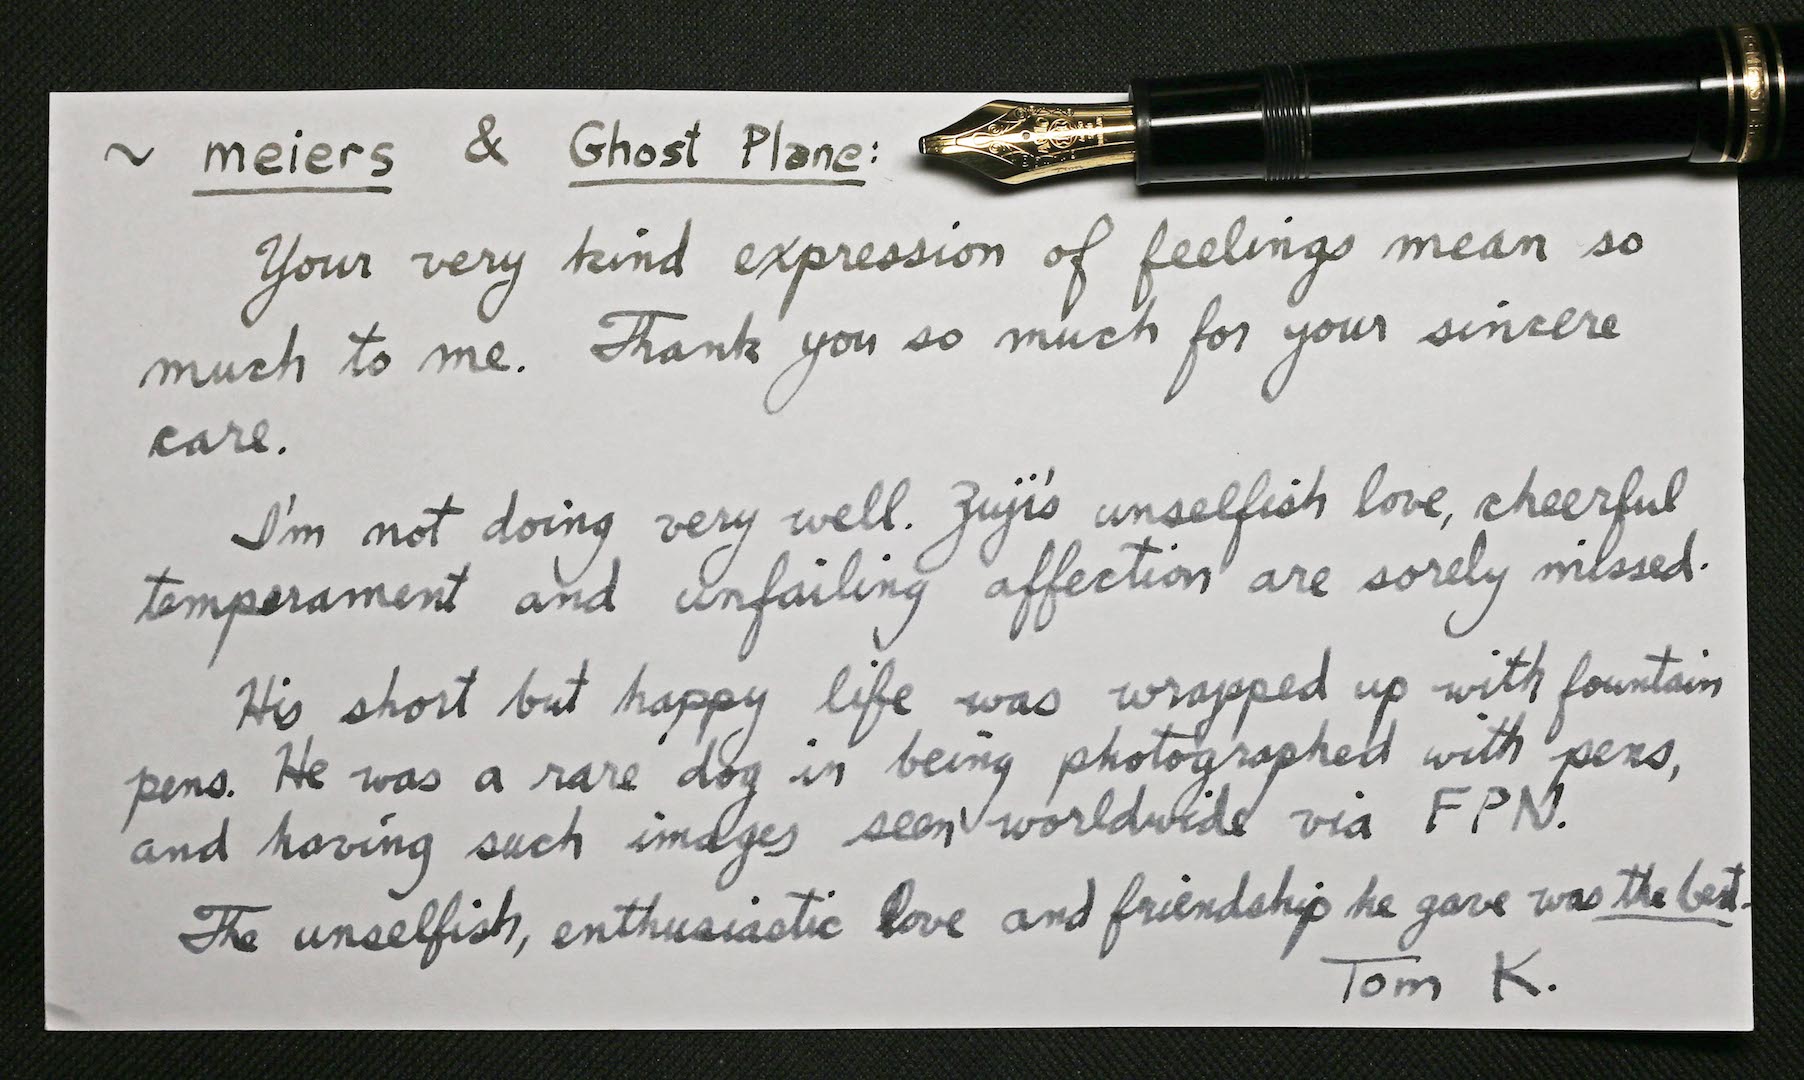 ~ meiers & Ghost Plane:
Your very kind expression of feelings mean so
much to me. Thank you so much for your sincere
care.
I'm not doing very well. Zuji's unselfish love, cheerful
temperament and unfailing affection are sorely missed.
His short but happy life was wrapped up with fountain
pens. He was a rare dog in being photographed with pens,
and having such images seen worldwide via FPN.
The unselfish, enthusiastic love and friendship he gave was the best.
Tom K.